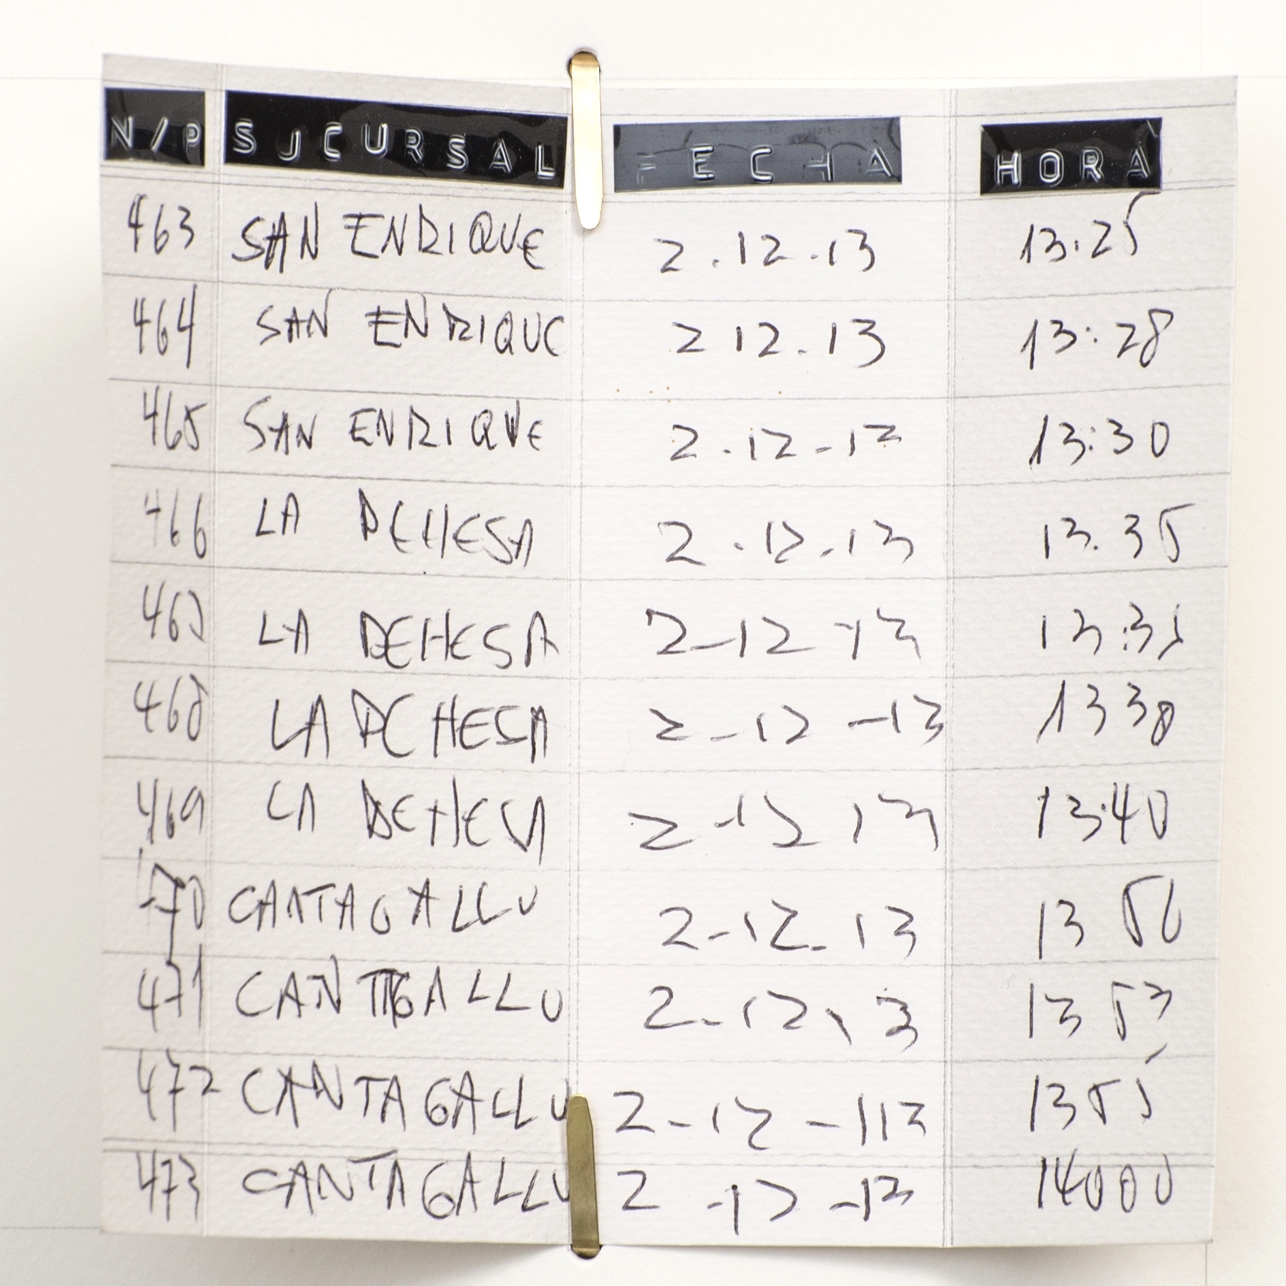 N/P SUCURSAL FECHA HORA
463 SAN ENRIQUE 2.12.13 13:25
464 SAN ENRIQUE 2 12.13 13:28
465 SAN ENRIQUE 2.12-13 13:30
466 LA DEHESA 2.12.13 13.35
467 LA DEHESA 2-12-13
468 LA DEHESA 2-12-13 13 38
469 LA DEHESA 2-12 13 13:40
470 CANTAGALLO 2-12-13 13 50
471 CANTAGALLO 2-12 13 13 53
472 CANTAGALLO 2-12-113 13 55
473 CANTAGALLO 2-12-13 14000